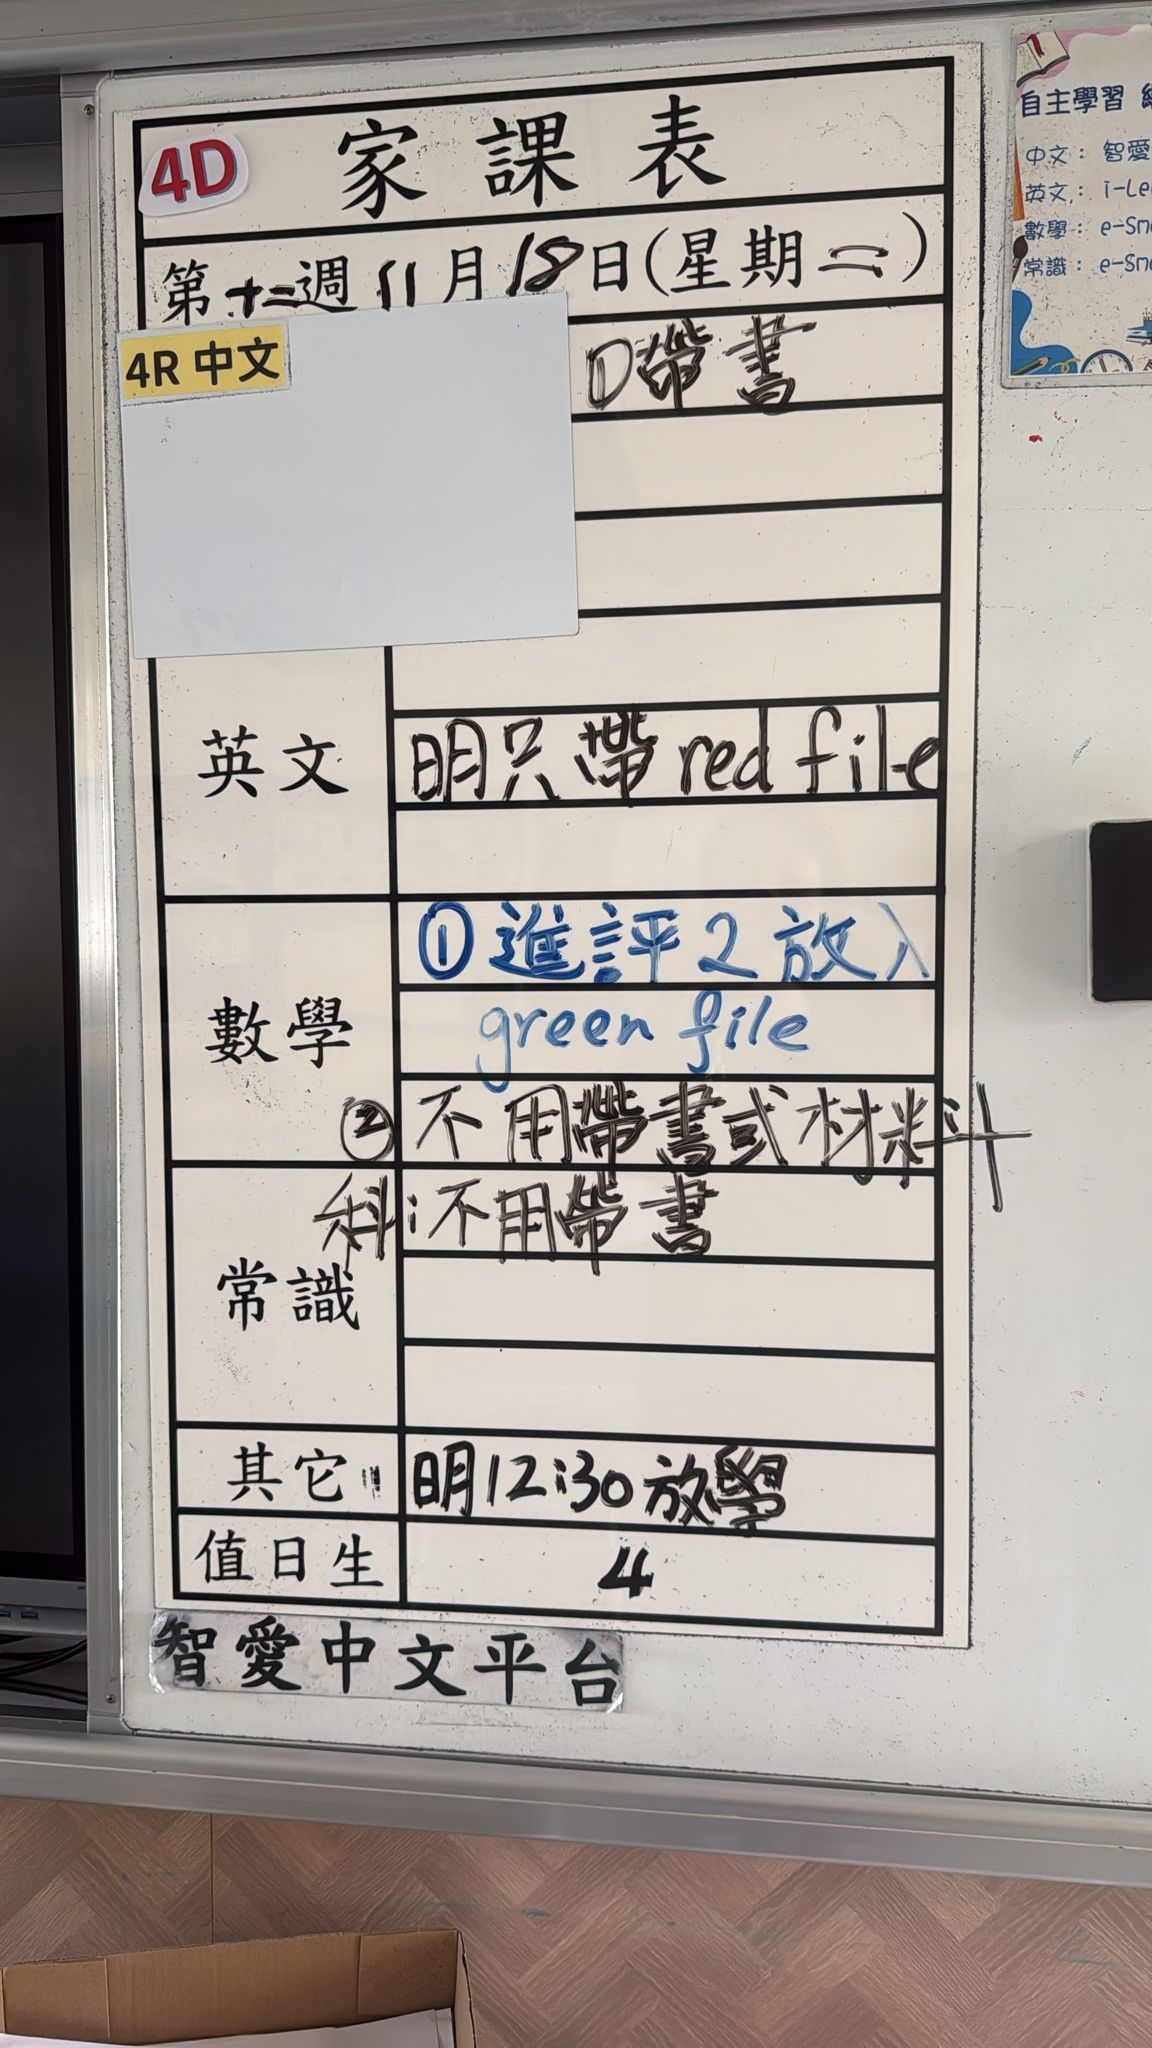 4D
家課表
第十二週 11月18日(星期二)
4R 中文
D帶書
英文
明只帶 red file
數學
①進評2放入
green file
②不用帶書或材料
常識
科:不用帶書
其它
明12:30放學
值日生
4
智愛中文平台
自主學習
中文：智愛
英文：i-Le
數學：e-Sm
常識：e-Sm